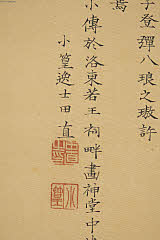 子登彈八琅之璈許
焉
小傳於洛東若王祠畔畫神堂中
小篁逸士田直
小篁